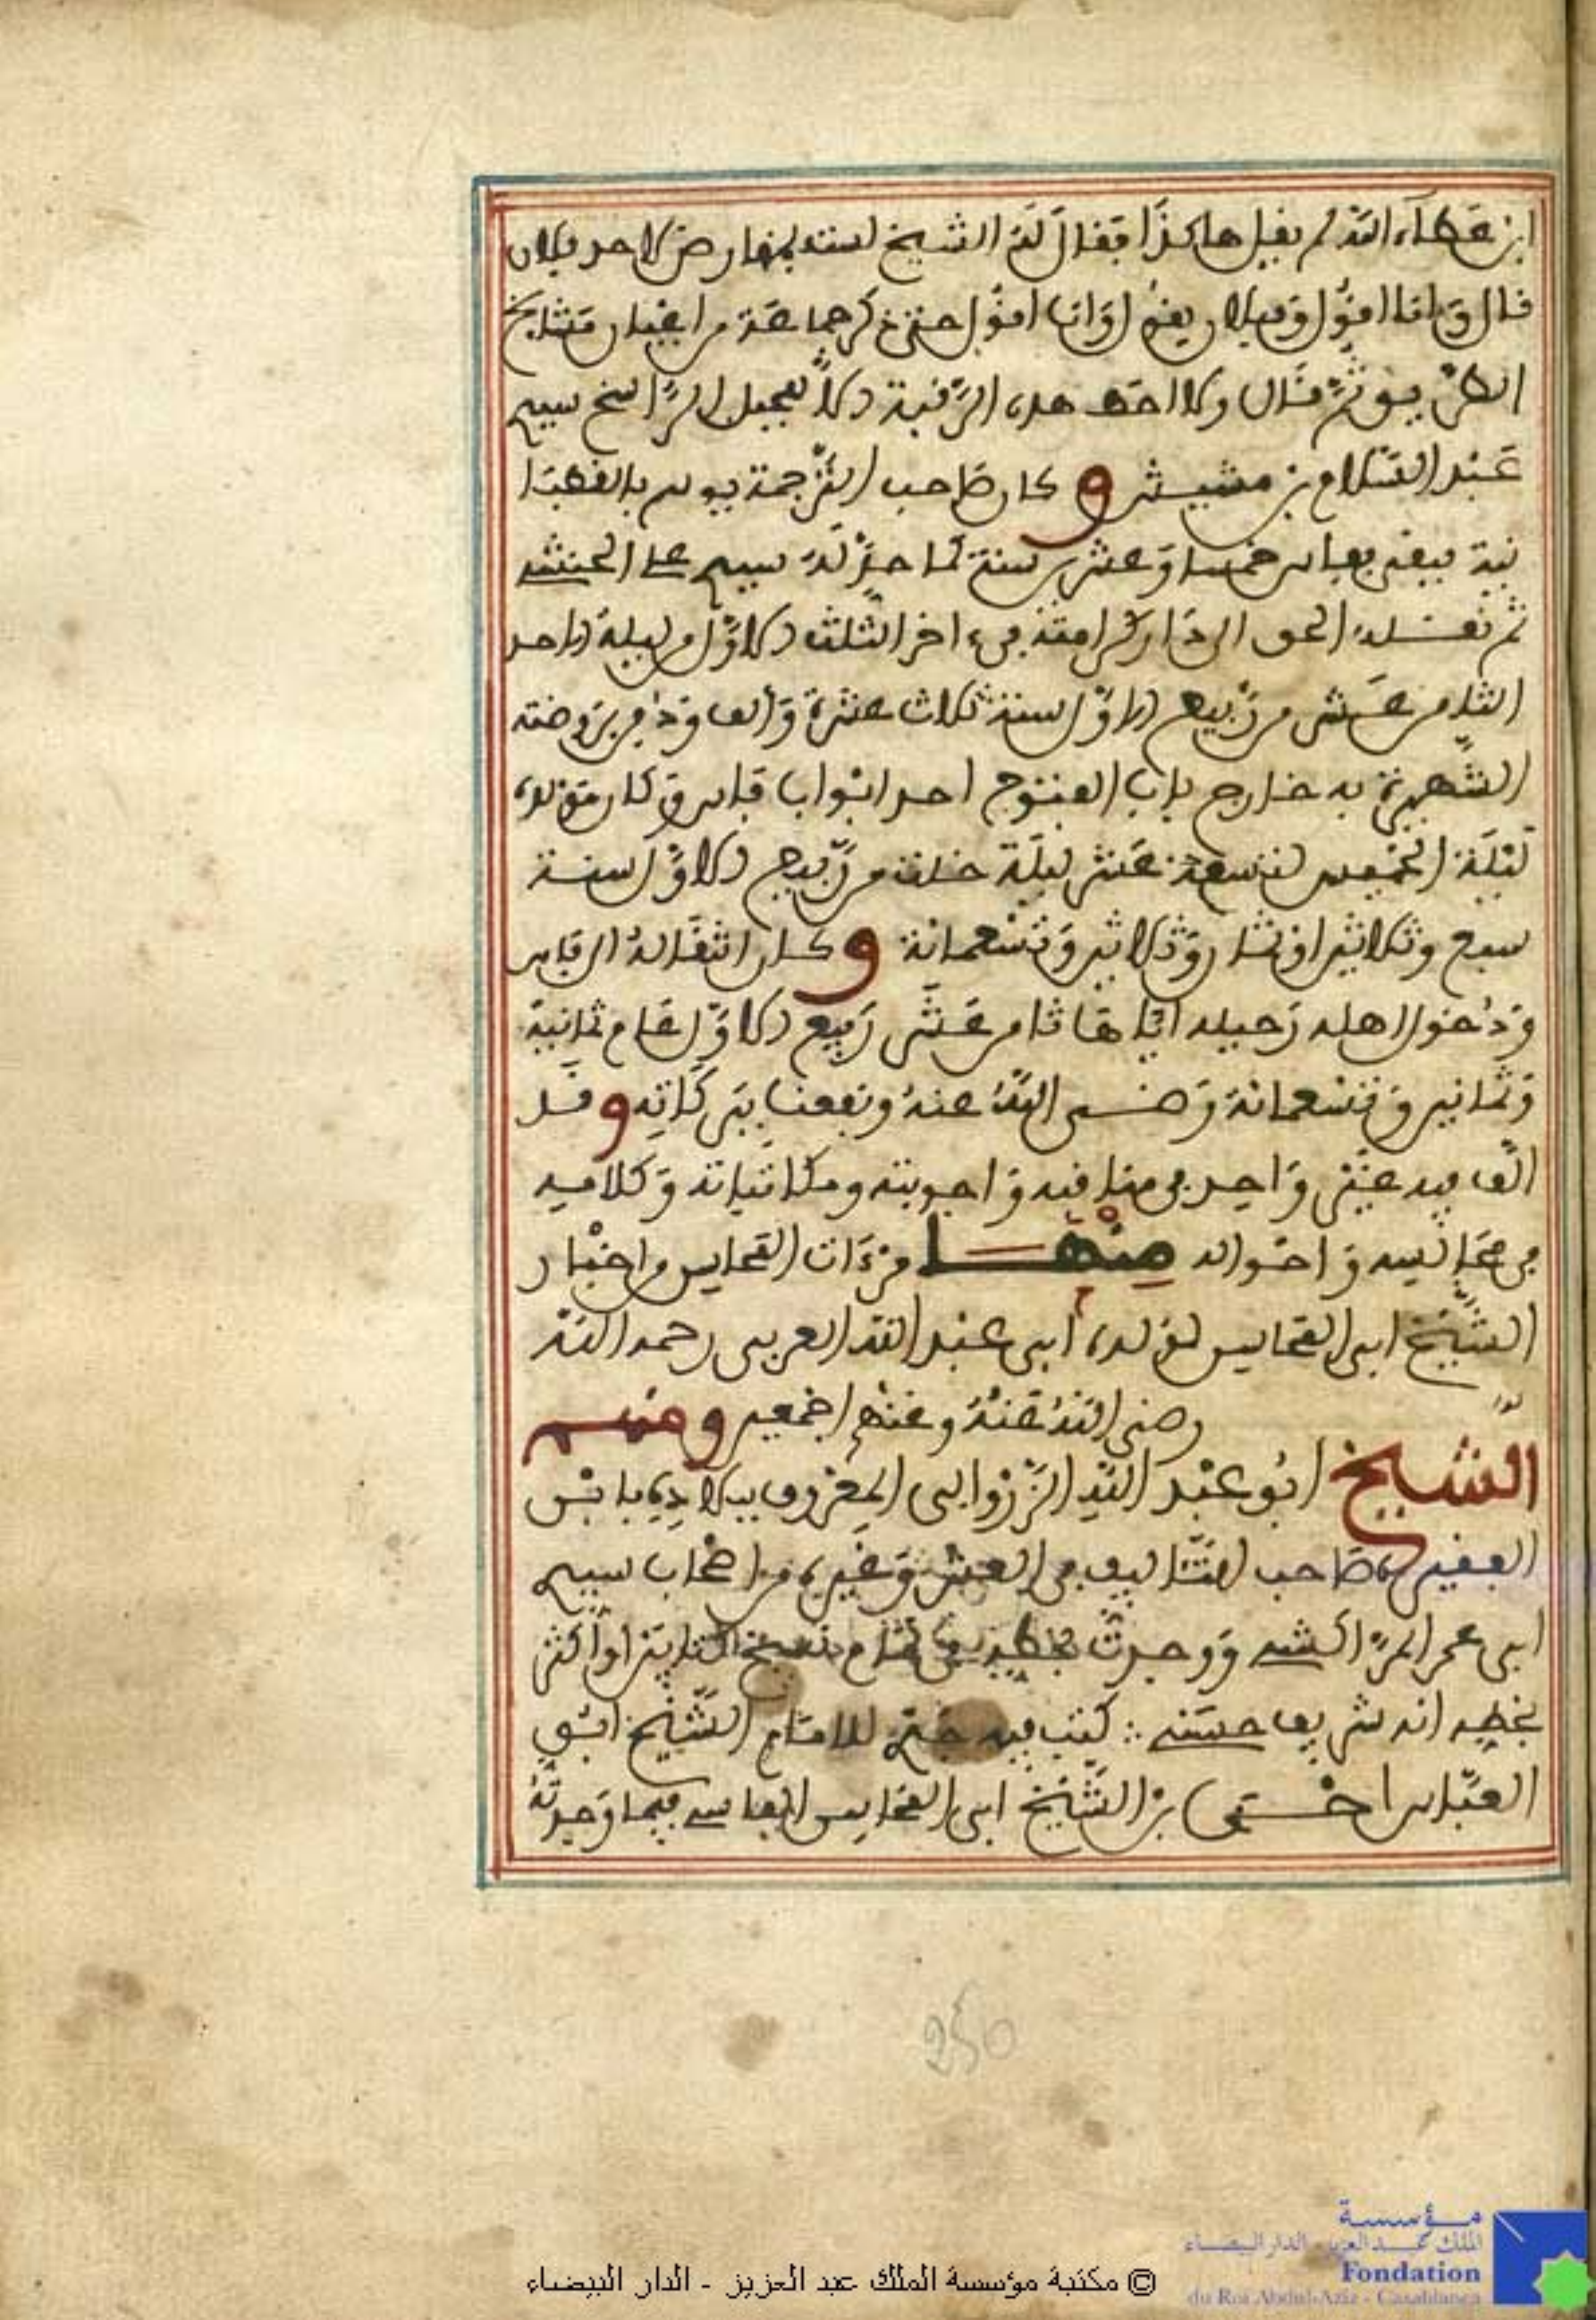 ابن عطاء الله لم يقبل هاكذا فقال له الشيخ لسنا بمفارض لاحد فلان
قال وانا اقول وفلان يقول وانا اقول حتى ذكر جماعة من اعيان مشايخ
الطريق ثم قال ولا اخذ هذه الرقبة الا الجبل الراسخ سيدي
عبد السلام بن مشيش وكان صاحب الترجمة يوسم بالقطبا
نية فبقي بفاس خمسا وعشرين سنة كما حد له سيدي
ثم نقله الحق الى دار كرامته في اخر الثلث الاول من ليلة الاحد
الثامن عشر من ربيع الاول سنة ثلاث عشرة والف ودفن بروضته
الشهيرة به خارج باب الفتوح احد ابواب فاس وكان مولده
ليلة الخميس لتسعة عشر ليلة خلت من ربيع الاول سنة
سبع وثلاثين او ثمان وثلاثين وتسعمائة وكان انتقاله الى فاس
ودخول اهله رحيله اياها ثامن عشر ربيع الاول عام ثمانية
وثمانين وتسعمائة رضي الله عنه ونفعنا ببركاته وقد
الف فيه غير واحد في مناقبه واجوبته ومكاتباته وكلامه
في مجالسه واحواله منها مرءات المحاسن من اخبار
الشيخ ابي المحاسن لولده ابي عبد الله العربي رحمه الله
رضي الله عنه وعنهم اجمعين ومنهم
الشيخ ابو عبد الله الزروالي المعروف ببلاده بابن
الفقيه صاحب التئاليف في وغيره من اصحاب سيدي
ابي عمر المراكشي ووجدت بخطه في تمام نسخ كتابين او اكثر
بخطه انه شريف حسني كتب فيه للامام الشيخ ابي
العباس احمد بن الشيخ ابي المحاسن الفاسي فيما وجدته
250
© مكتبة مؤسسة الملك عبد العزيز - الدار البيضاء
مؤسسة
الملك عبد العزيز - الدار البيضاء
Fondation
du Roi Abdul-Aziz - Casablanca